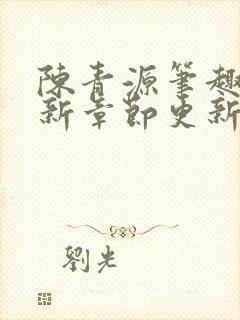 陳青源筆趣
新章節更新
劉光